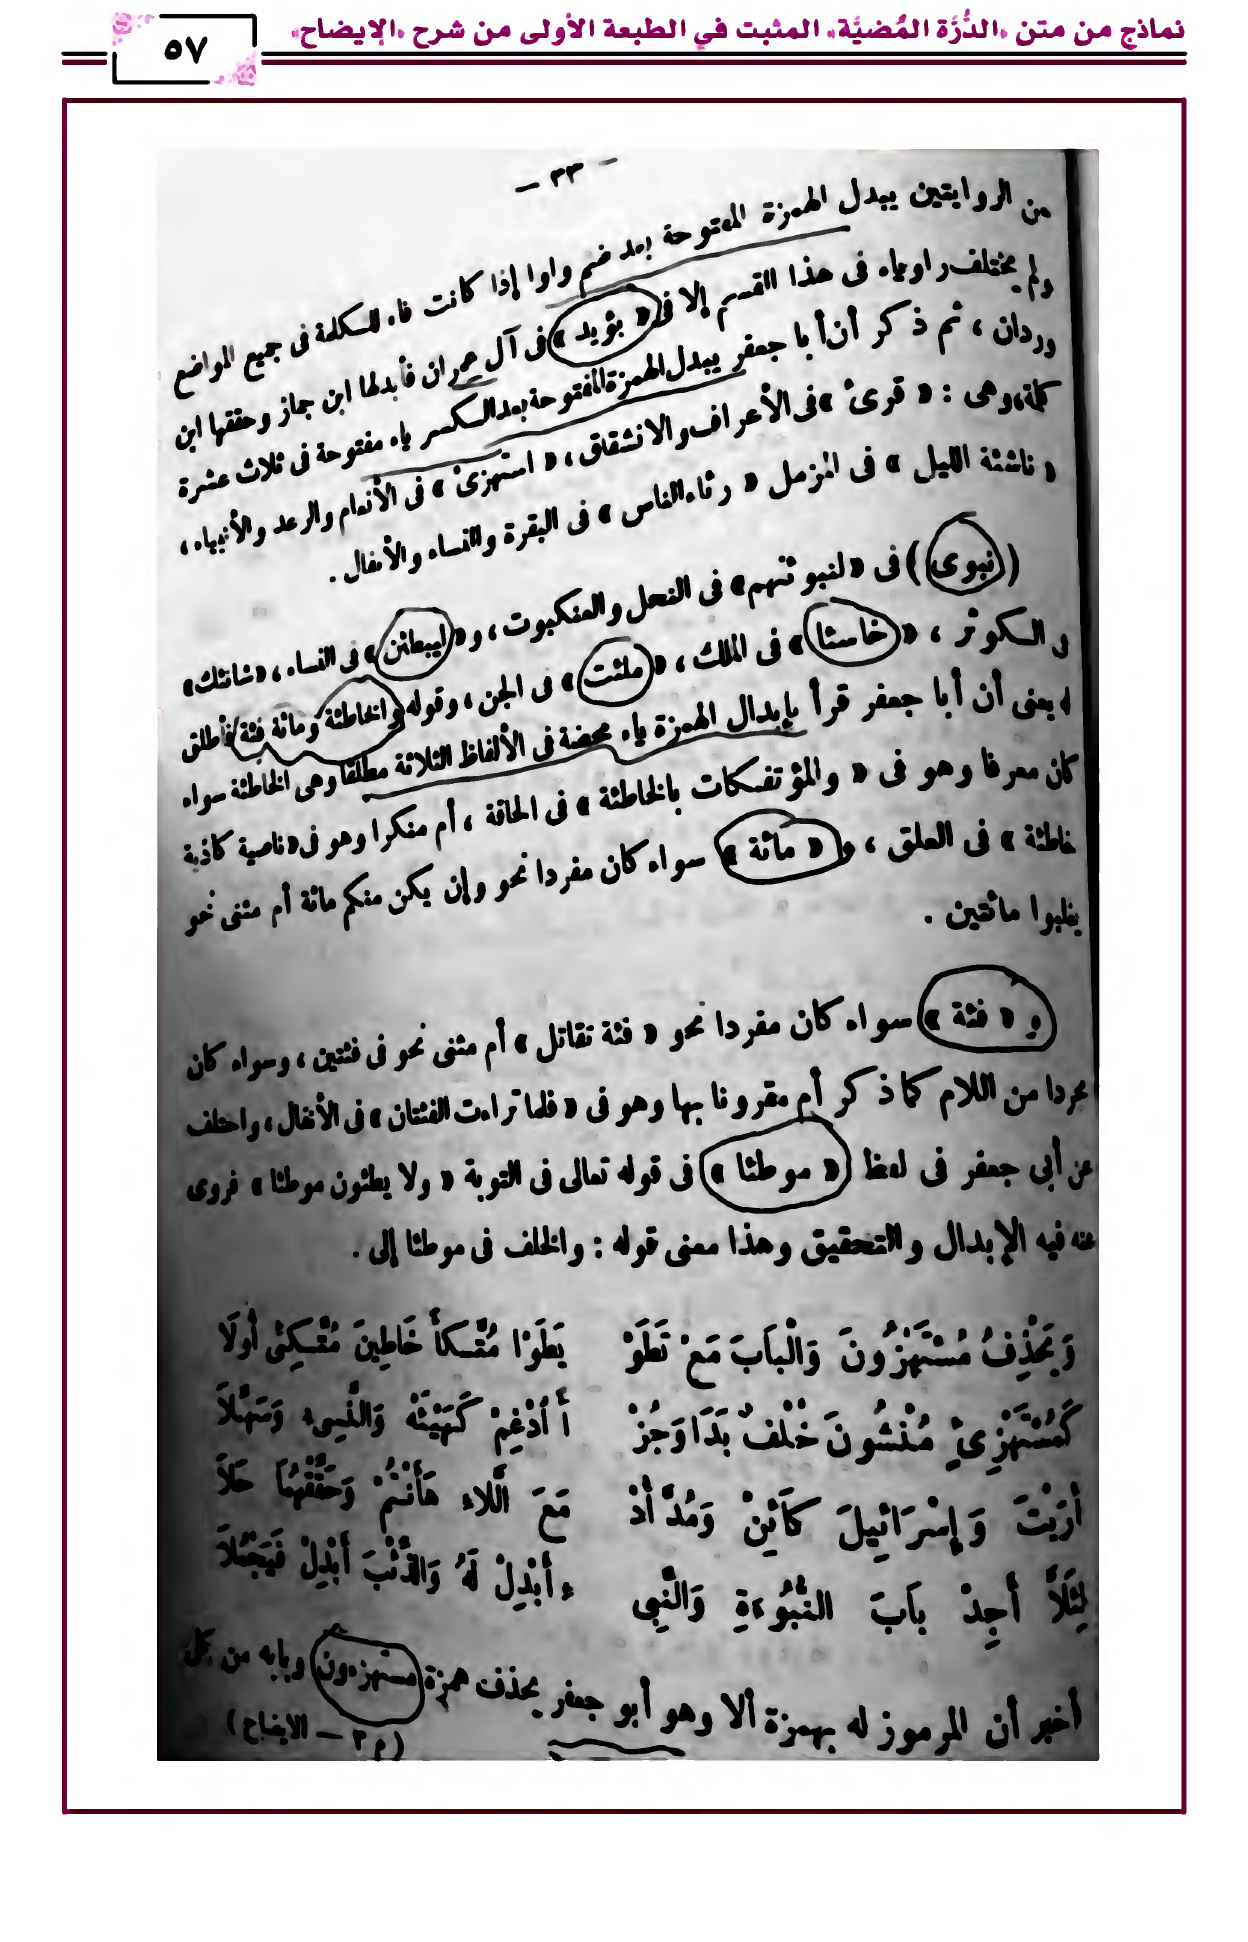 نماذج من متن «الدُّرَّة المُضيَّة» المثبت في الطبعة الأولى من شرح «الإيضاح»
٥٧
– ٣٣ –
من الروايتين يبدل الهمزة المفتوحة بعد ضم واوا إذا كانت فاء للكلمة فى جميع المواضع
ولم يختلف راوياه فى هذا القسم إلا فى « يؤيد » فى آل عمران فأبدلها ابن جماز وحققها ابن
وردان ، ثم ذكر أن أبا جعفر يبدل الهمزة المفتوحة بعد الكسر ياء مفتوحة فى ثلاث عشرة
كلمة، وهى : « قرئ » فى الأعراف والانشقاق ، « استهزئ » فى الأنعام والرعد والأنبياء ،
« ناشئة الليل » فى المزمل « رئاء الناس » فى البقرة والنساء والأنفال .
( نبوى ) فى « لنبوئنهم » فى النحل والعنكبوت ، و « ليبطئن » فى النساء ، « شانئك »
فى الكوثر ، « خاسئا » فى الملك ، « ملئت » فى الجن ، وقوله والخاطئة ومائة فئة فأطلق
له يعنى أن أبا جعفر قرأ بإبدال الهمزة ياء محضة فى الألفاظ الثلاثة مطلقا وهى الخاطئة سواء
كان معرفا وهو فى « والمؤتفكات بالخاطئة » فى الحاقة ، أم منكرا وهو فى « ناصية كاذبة
خاطئة » فى العلق ، و « مائة » سواء كان مفردا نحو وإن يكن منكم مائة أم مثنى نحو
يغلبوا مائتين .
و « فئة » سواء كان مفردا نحو « فئة تقاتل » أم مثنى نحو فى فئتين ، وسواء كان
مجردا من اللام كما ذكر أم مقرونا بها وهو فى « فلما تراءت الفئتان » فى الأنفال ، واختلف
عن أبى جعفر فى لفظ « موطئا » فى قوله تعالى فى التوبة « ولا يطئون موطئا » فروى
عنه فيه الإبدال والتحقيق وهذا معنى قوله : والخلف فى موطئا إلى .
وَيَحْذِفُ مُسْتَهْزُونَ وَالْبَابَ مَعْ تَطَوْ يَطَوْا مُتَّكَأً خَاطِينَ مُتَّكِئِ أُولَا
كَمُسْتَهْزِئِ مُنْشُونَ خُلْفٌ بَدَا وَجُزْ أً أُدْغِمْ كَهَيْئَهْ وَالنَّسِىء وَسَهِّلَا
أَرَيْتَ وَإِسْرَائِيلَ كَائِنْ وَمُدَّ أُدْ مَعَ اللَّاءِ هَأَنْتُمْ وَحَقِّقْهُمَا حَلَا
لِئَلَّا أَجِدْ بَابَ النُّبُوءَةِ وَالنَّبِى ءِ أَبْدِلْ لَهُ وَالذِّئْبَ أَبْدِلْ فَيَجْمُلَا
أخبر أن المرموز له بهمزة ألا وهو أبو جعفر يحذف همزة مستهزءون وبابه من كل
(م ٣ – الايضاح)